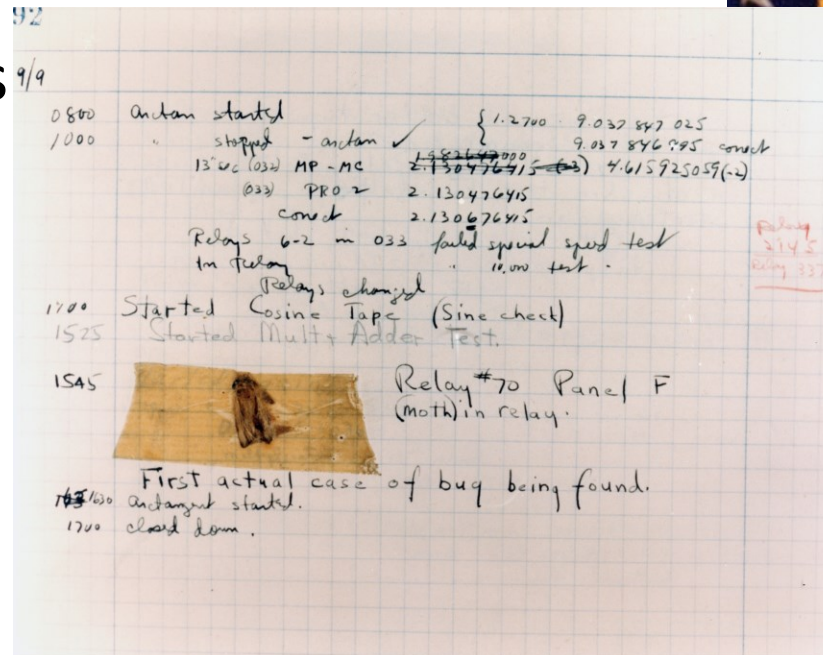 92
S
9/9
0800 Antan started
1000 " stopped - antan ✓ { 1.2700 9.037 847 025
9.037 846 795 correct
13"uc (032) MP - MC 2.130476415 (-3) 4.615925059(-2)
(033) PRO 2 2.130476415
correct 2.130676415
Relays 6-2 in 033 failed special speed test
In Relay " 10,000 test.
Relays changed
Relay
3370
1700 Started Cosine Tape (Sine check)
1525 Started Mult + Adder Test.
1545 Relay #70 Panel F
(moth) in relay.
First actual case of bug being found.
1630 antangent started.
1700 closed down.